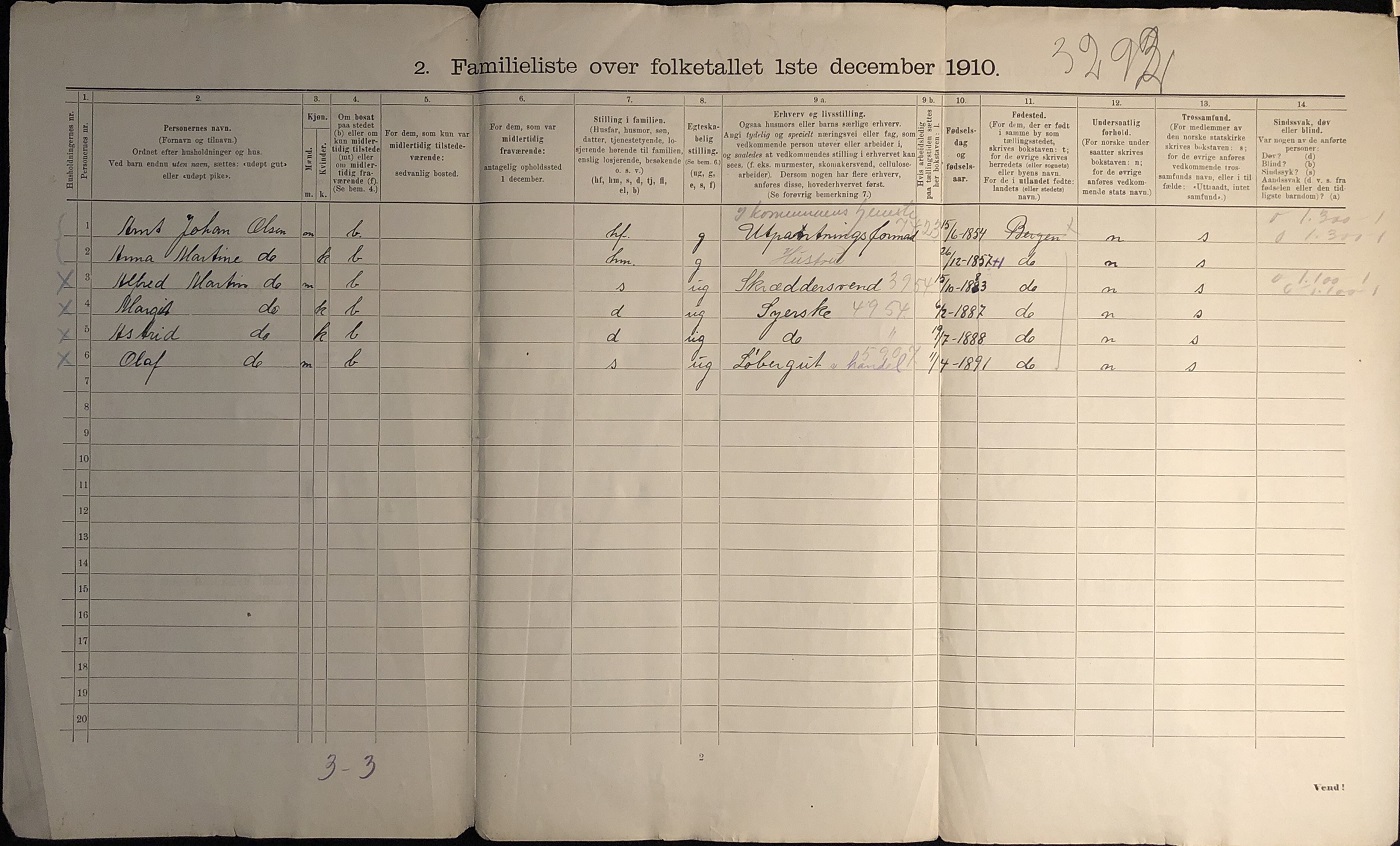 3292
2. Familieliste over folketallet 1ste december 1910.
1. 2. 3. 4. 5. 6. 7. 8. 9 a. 9 b. 10. 11. 12. 13. 14.
Husholdningernes nr.
Personernes nr.
Personernes navn.
(Fornavn og tilnavn.)
Ordnet efter husholdninger og hus.
Ved barn endnu uten navn, sættes: «udøpt gut»
eller «udøpt pike».
Kjøn.
Mænd.
Kvinder.
m. k.
Om bosat
paa stedet
(b) eller om
midler-
tidig tilstede
(mt) eller
om midler-
tidig fra-
værende (f).
(Se bem. 4.)
For dem, som kun var
midlertidig tilstede-
værende:
sedvanlig bosted.
For dem, som var
midlertidig
fraværende:
antagelig opholdssted
1 december.
Stilling i familien.
(Husfar, husmor, søn,
datter, tjenestetyende, lo-
sjerende hørende til familien,
enslig losjerende, besøkende
o. s. v.)
(hf, hm, s, d, tj, fl,
el, b)
Egteska-
belig
stilling.
(Se bem. 6.)
(ug, g,
e, s, f)
Erhverv og livsstilling.
Ogsaa husmors eller barns særlige erhverv.
Angi tydelig og specielt næringsvei eller fag, som
vedkommende person utøver eller arbeider i,
og saaledes at vedkommendes stilling i erhvervet kan
sees, (f. eks. murmester, skomakersvend, cellulose-
arbeider). Dersom nogen har flere erhverv,
anføres disse, hovederhvervet først.
(Se forøvrig bemerkning 7.)
Hvis arbeidsledig
paa tællingstiden sættes
her bokstaven: l.
Fødsels-
dag
og
fødsels-
aar.
Fødested.
(For dem, der er født
i samme by som
tællingsstedet,
skrives bokstaven: t;
for de øvrige skrives
herredets (eller sognets)
eller byens navn.
For de i utlandet fødte:
landets (eller stedets)
navn.)
Undersaatlig
forhold.
(For norske under
saatter skrives
bokstaven: n;
for de øvrige
anføres vedkom-
mende stats navn.)
Trossamfund.
(For medlemmer av
den norske statskirke
skrives bokstaven: s;
for de øvrige anføres
vedkommende tros-
samfunds navn, eller i til-
fælde: «Uttraadt, intet
samfund».)
Sindssvak, døv
eller blind.
Var nogen av de anførte
personer:
Døv? (d)
Blind? (b)
Sindssyk? (s)
Aandssvak (d v. s. fra
fødselen eller den tid-
ligste barndom)? (a)
I kommunens tjeneste
1 Arnt Johan Olsen m b hf g 15/6-1854 Bergen n s 0 1.300 1
2 Anna Martine do k b hm. g Hustru 26/12-1857 do n s
3 Alfred Martin do m b s ug Skræddersvend 3954 15/10-1883 do n s 0 1.100 1
4 Margit do k b d ug Syerske 4954 6/2-1887 do n s
5 Astrid do k b d ug do " 19/7-1888 do n s
6 Olaf do m b s ug Løbergut v handel 11/4-1891 do n s
7
8
9
10
11
12
13
14
15
16
17
18
19
20
3-3
2
Vend!